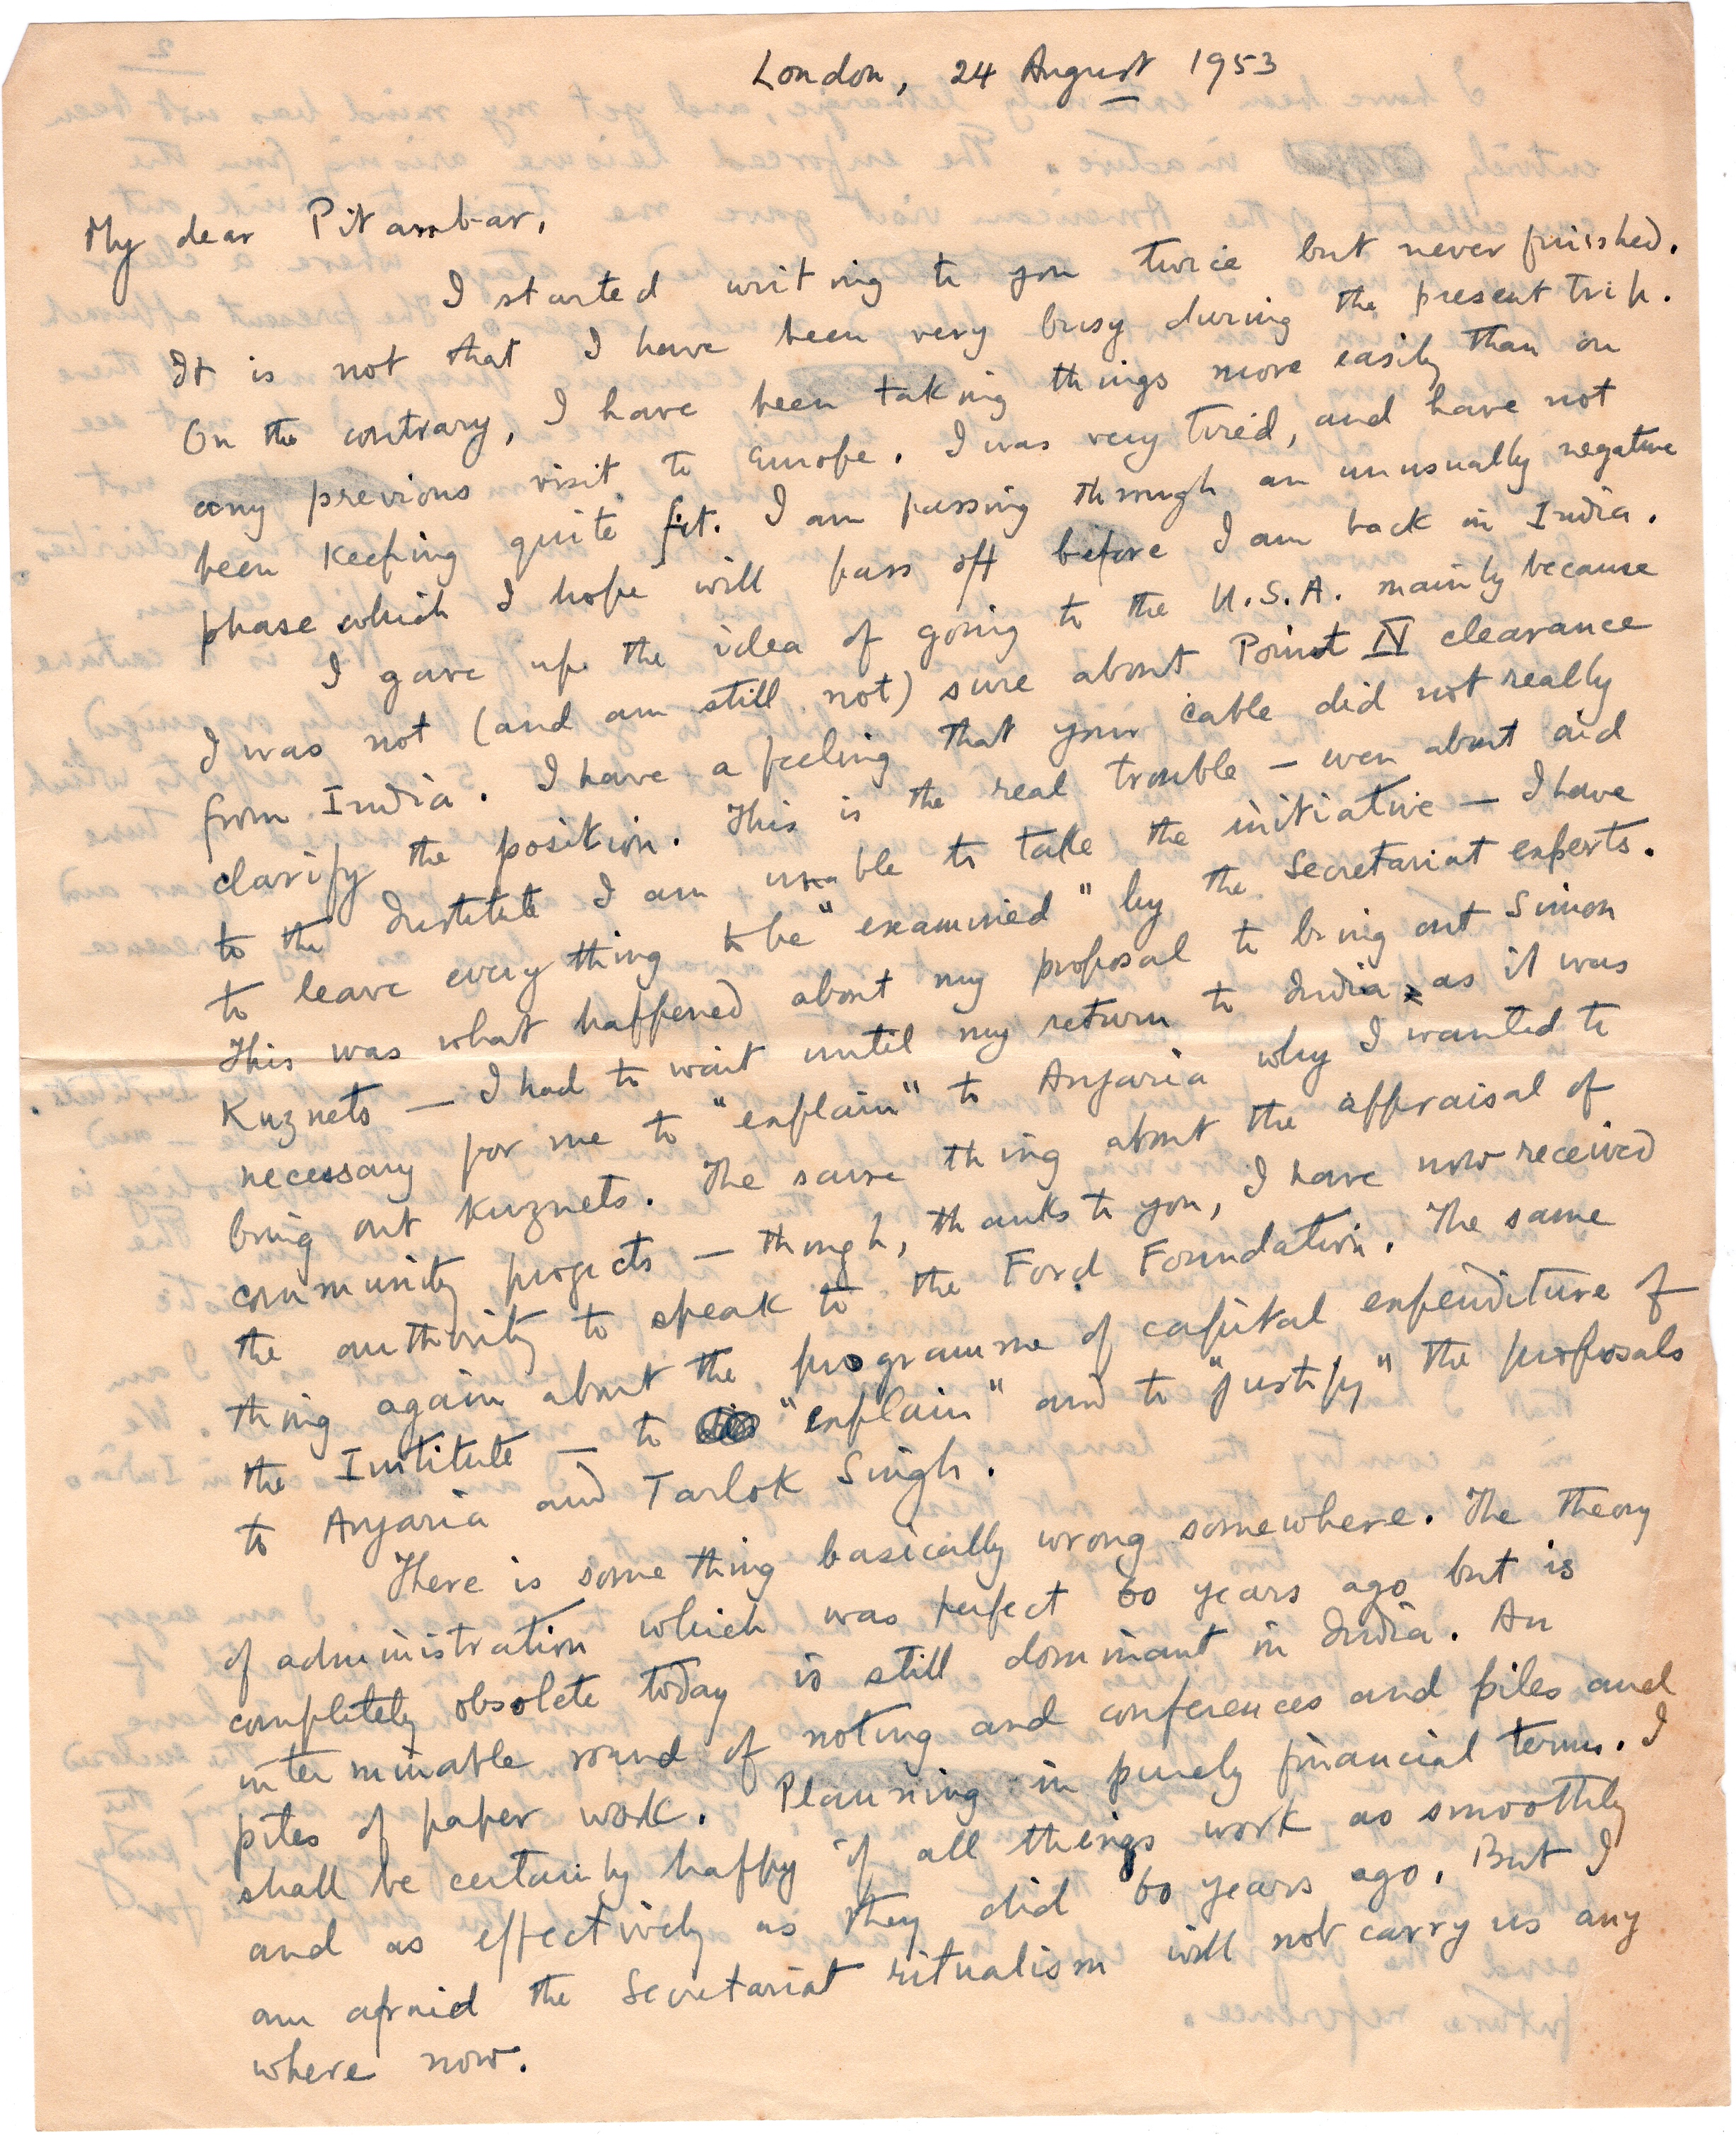 London, 24 August 1953
My dear Pitambar,
I started writing to you twice but never finished.
It is not that I have been very busy during the present trip.
On the contrary, I have been taking things more easily than on
any previous visit to Europe. I was very tired, and have not
been keeping quite fit. I am passing through an unusually negative
phase which I hope will pass off before I am back in India.
I gave up the idea of going to the U.S.A. mainly because
I was not (and am still not) sure about Point IV clearance
from India. I have a feeling that your cable did not really
clarify the position. This is the real trouble — even about aid
to the Institute I am unable to take the initiative — I have
to leave every thing to be "examined" by the Secretariat experts.
This was what happened about my proposal to bring out Simon
Kuznets — I had to wait until my return to India as it was
necessary for me to "explain" to Anjaria why I wanted to
bring out Kuznets. The same thing about the appraisal of
community projects — though, thanks to you, I have now received
the authority to speak to the Ford Foundation. The same
thing again about the programme of capital expenditure of
the Institute — to "explain" and to "justify" the proposals
to Anjaria and Tarlok Singh.
There is some thing basically wrong somewhere. The theory
of administration which was perfect 60 years ago but is
completely obsolete today is still dominant in India. An
interminable round of noting and conferences and piles and
piles of paper work. Planning in purely financial terms. I
shall be certainly happy if all things work as smoothly
and as effectively as they did 60 years ago. But I
am afraid the Secretariat ritualism will not carry us any
where now.